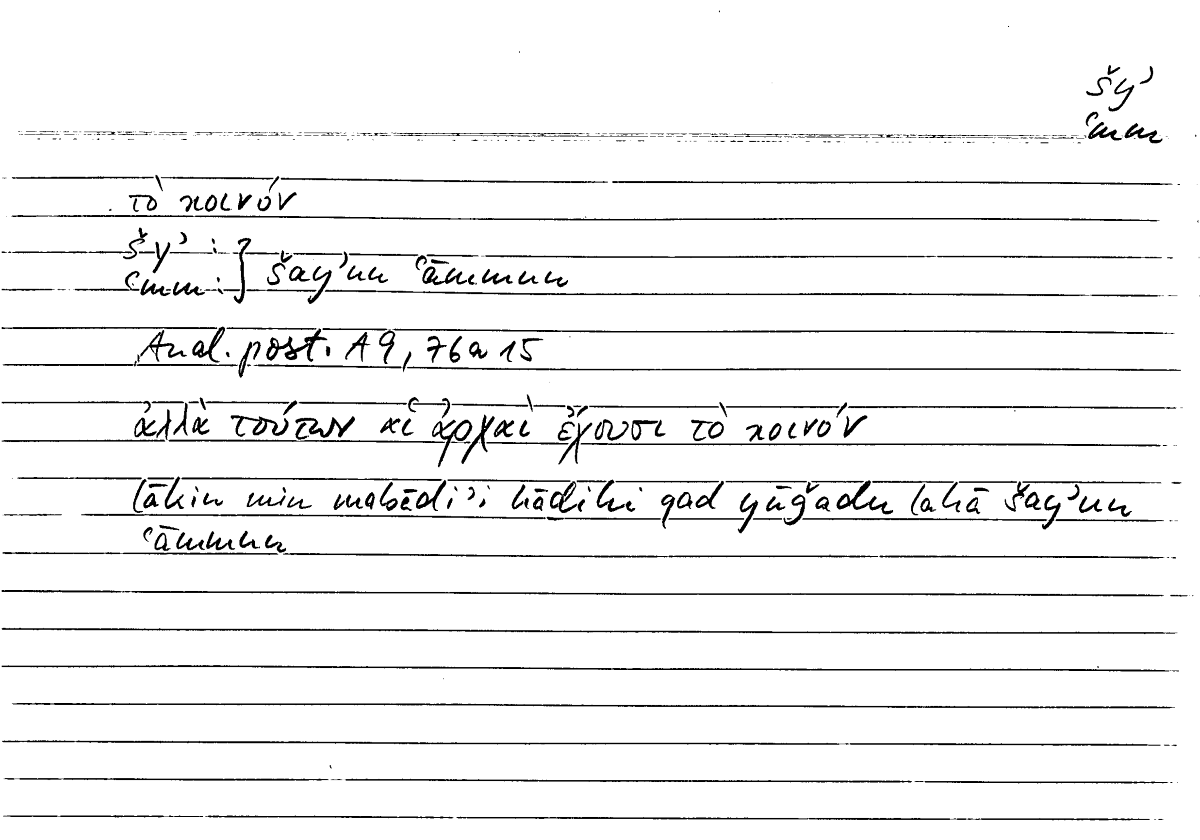 šyʾ
ʿmm
τὸ κοινόν
šyʾ :
ʿmm : } šayʾun ʿāmmun
Anal. post. A 9, 76a 15
ἀλλὰ τούτων αἱ ἀρχαὶ ἔχουσι τὸ κοινόν
lākin min mabādiʾi hādihi qad yūǧadu lahā šayʾun
ʿāmmun